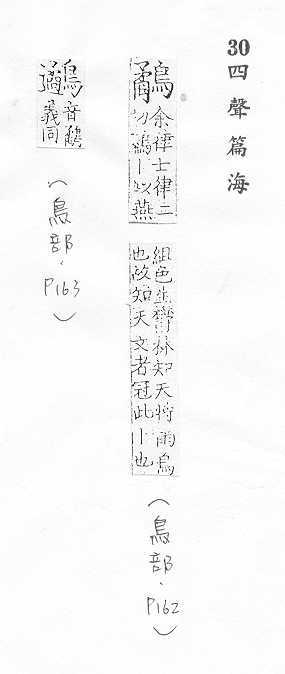 30四聲篇海
鷸余律士律二切鷸丨似燕
紺色生鬱林知天將雨鳥也故知天文者冠此丨也
(鳥部.P162)
鷸音鷸義同
(鳥部.P163)